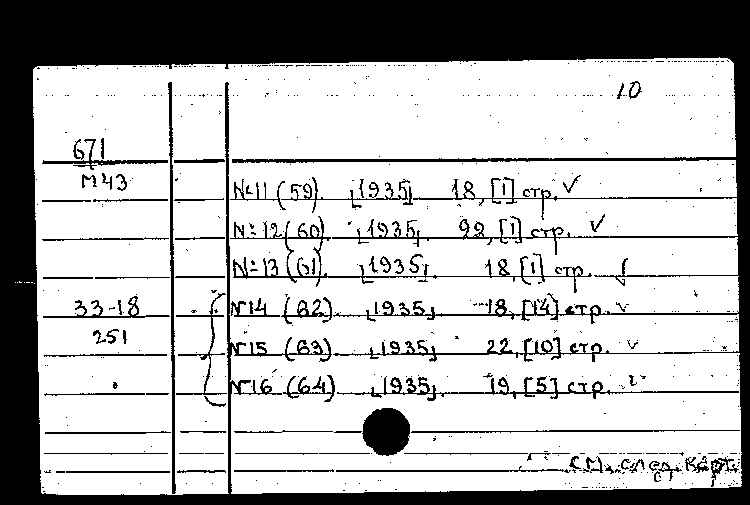 10
671
М43
№11 (59). [1935] 18, [1] стр. ✓
№12 (60). [1935]. 22, [1] стр. ✓
№13 (61). [1935]. 18, [1] стр. ✓
33-18 №14 (62). [1935] 18, [14] стр. ✓
251 №15 (63). [1935] 22, [10] стр. ✓
№16 (64) [1935]. 19, [5] стр. ✓
См. след. карт.